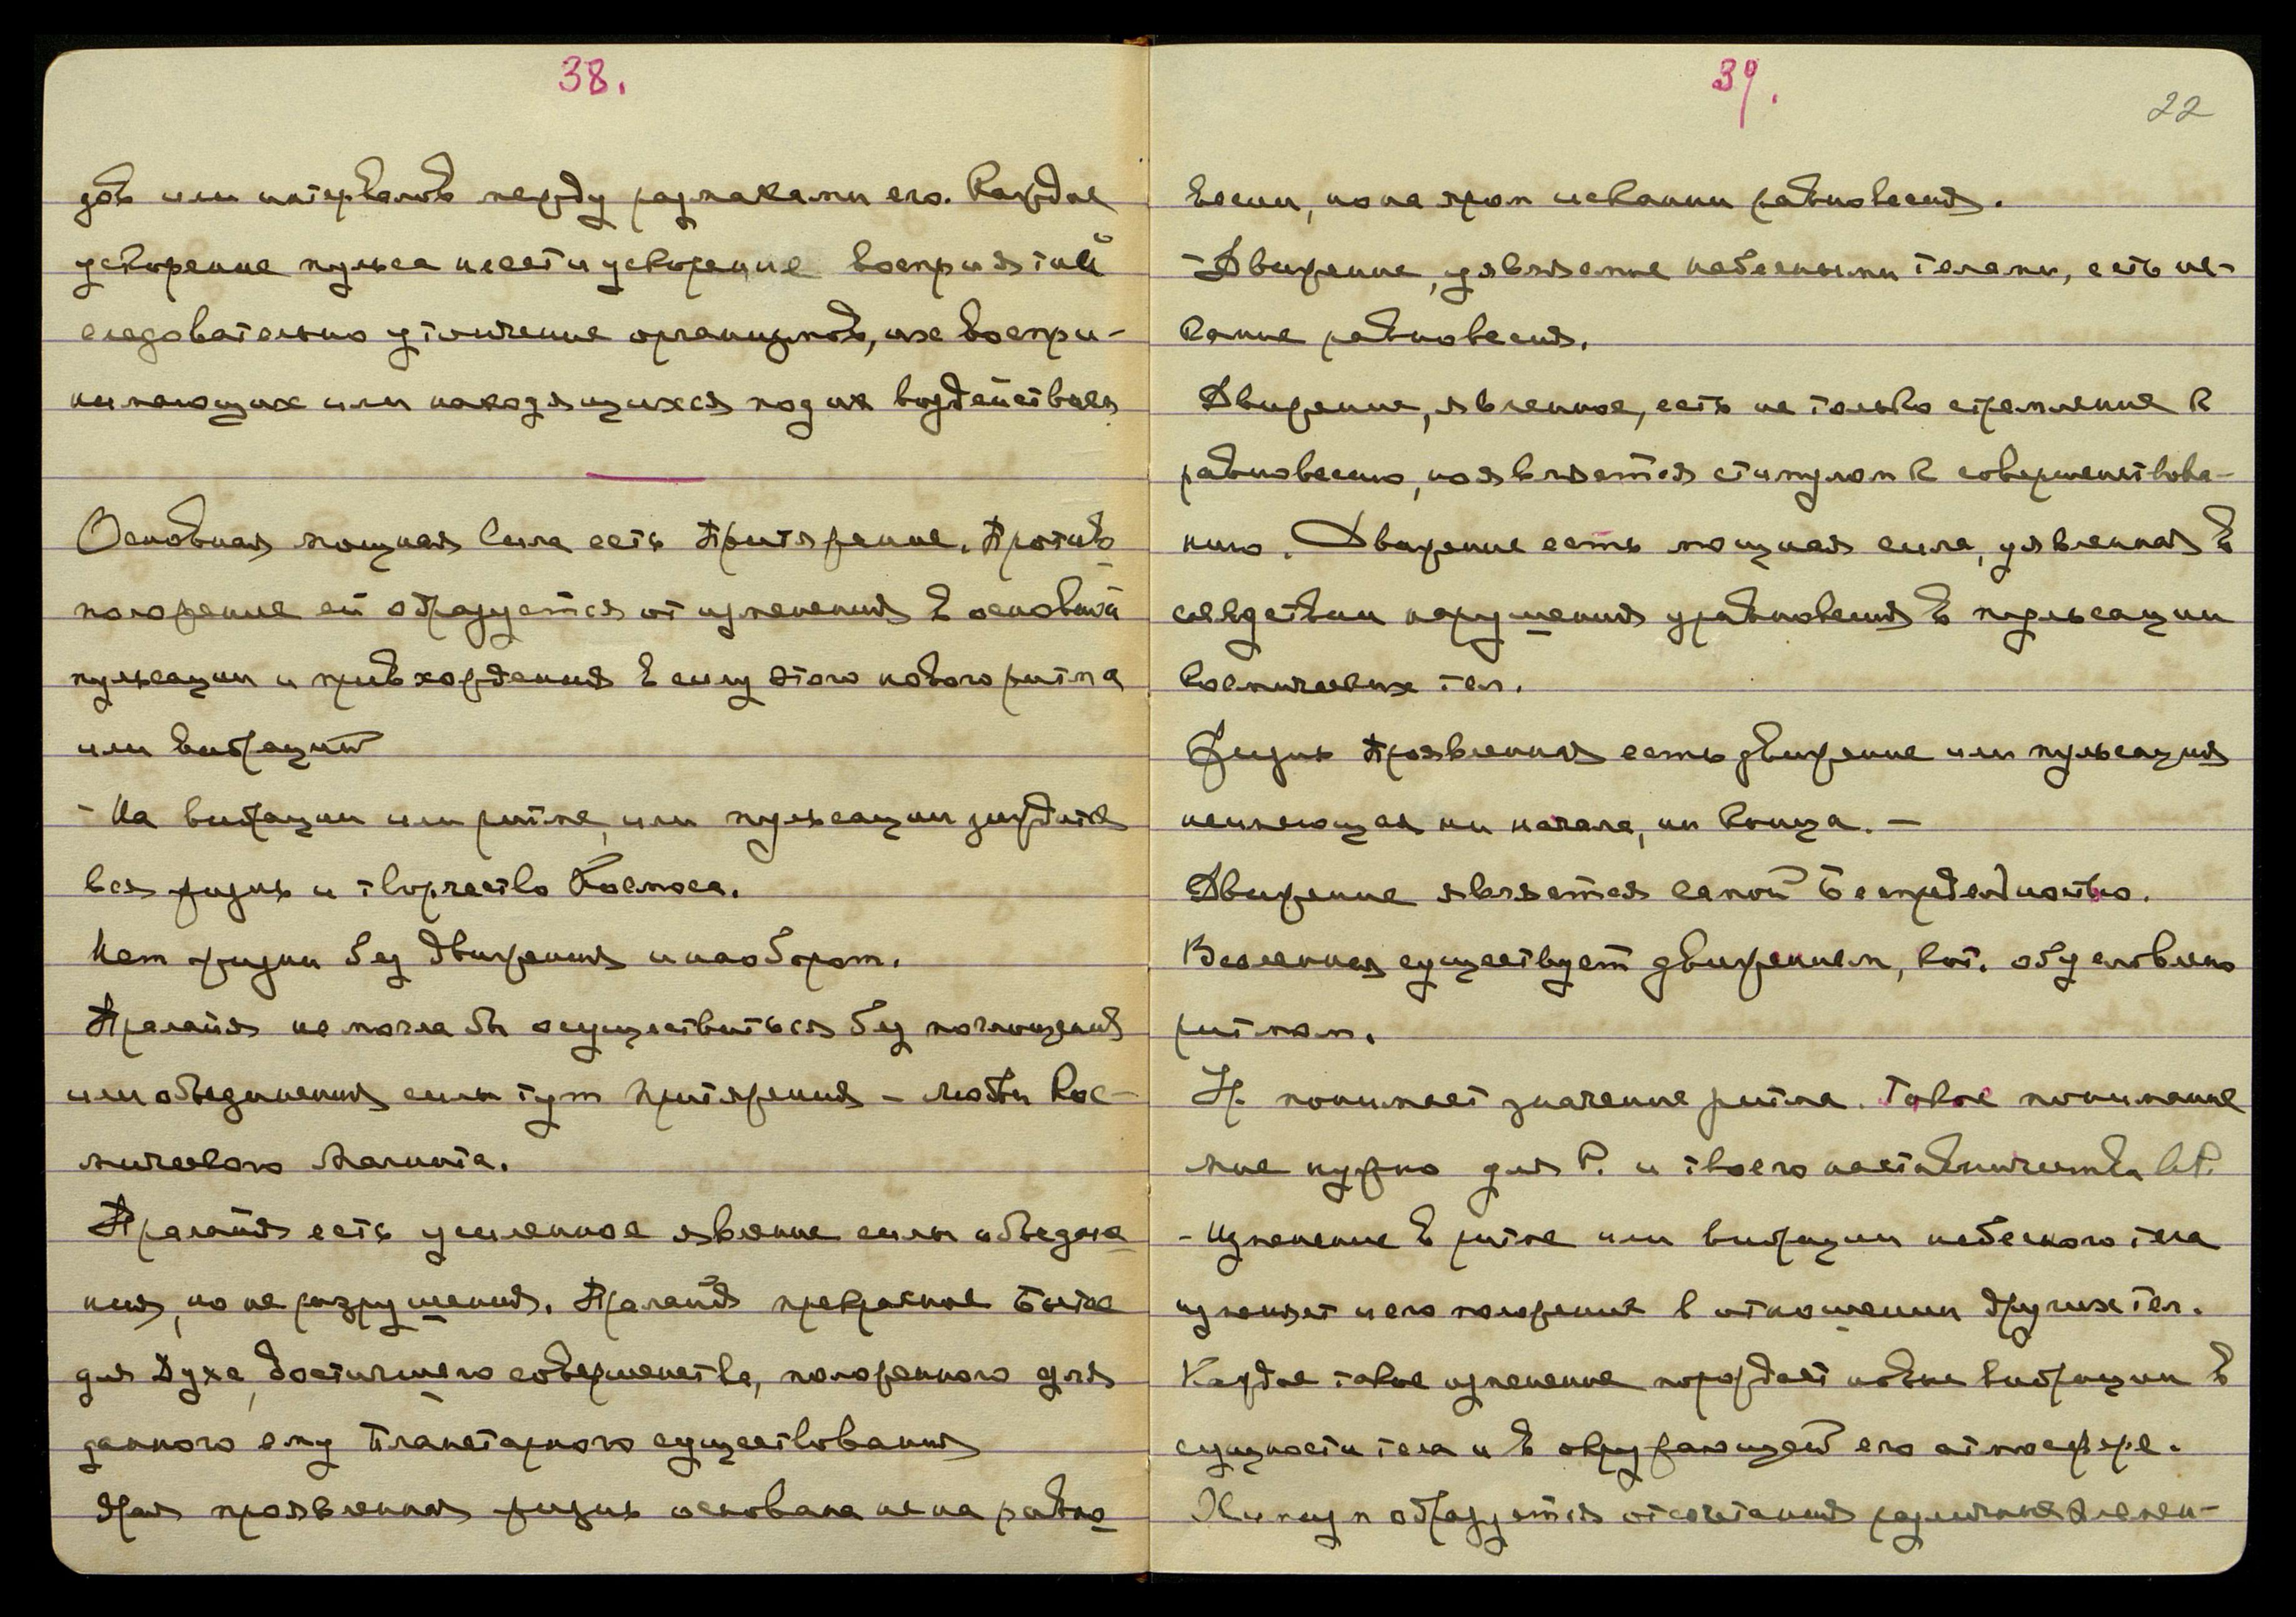 38.
дов или интервалов между размахами его. Каждое
ускорение пульса несет и ускорение восприятий
следовательно утончение организмов, их воспри-
нимающих или находящихся под их воздействием.
Основная мощная Сила есть Притяжение. Противо
положение ей образуется от изменения в основной
пульсации и привхождения в силу этого нового ритма
или вибраций
- На вибрации или ритме, или пульсации зиждется
вся жизнь и творчество Космоса.
Нет жизни без движения и наоборот.
Пралайя не могла бы осуществиться без поглощения
или объединения силы тут Притяжения - Любви Кос-
мического Магнита.
Пралайя есть усиленное явление силы объедине
ния, но не разрушения. Пралайя прекрасное Бытие
для Духа, достигшего совершенства, положенного для
данного ему Планетарного существования
проявленная жизнь основана не на равно
39.
22
весии, но на искании равновесия.
- Движение, уявляемое небесными телами, есть ис-
кание равновесия.
Движение, явленное, есть не только стремление к
равновесию, но является стимулом к совершенствова-
нию. Движение есть мощная сила, уявленная в
следствии нарушения уравновесия в пульсации
космических тел.
Жизнь Проявленная есть движение или пульсация
неимеющая ни начала, ни конца. -
Движение является самой Беспредельностью.
Вселенная существует движением, кот. обусловлено
ритмом.
Н. понимает значение ритма. Такое понимание
мне нужно для Р. и твоего
- Изменение в ритме или вибрации небесного тела
изменяет и его положение в отношении других тел.
Каждое такое изменение порождает новые вибрации в
сущности тела и в окружающей его атмосфере.
Химизм образуется от сочетания различных элемен-